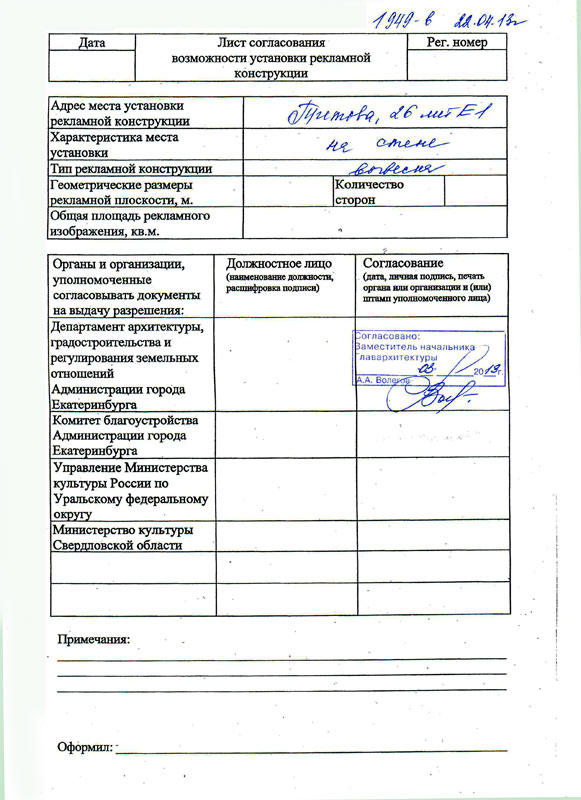 1949-в 22.04.13г
Дата
Лист согласования
возможности установки рекламной
конструкции
Рег. номер
Адрес места установки
рекламной конструкции
Титова, 26 лит Е1
Характеристика места
установки
на стене
Тип рекламной конструкции
вывеска
Геометрические размеры
рекламной плоскости, м.
Количество
сторон
Общая площадь рекламного
изображения, кв.м.
Органы и организации,
уполномоченные
согласовывать документы
на выдачу разрешения:
Должностное лицо
(наименование должности,
расшифровка подписи)
Согласование
(дата, личная подпись, печать
органа или организации и (или)
штамп уполномоченного лица)
Департамент архитектуры,
градостроительства и
регулирования земельных
отношений
Администрации города
Екатеринбурга
Согласовано:
Заместитель начальника
Главархитектуры
03 2013г.
А.А. Волегов
Комитет благоустройства
Администрации города
Екатеринбурга
Управление Министерства
культуры России по
Уральскому федеральному
округу
Министерство культуры
Свердловской области
Примечания:
Оформил: